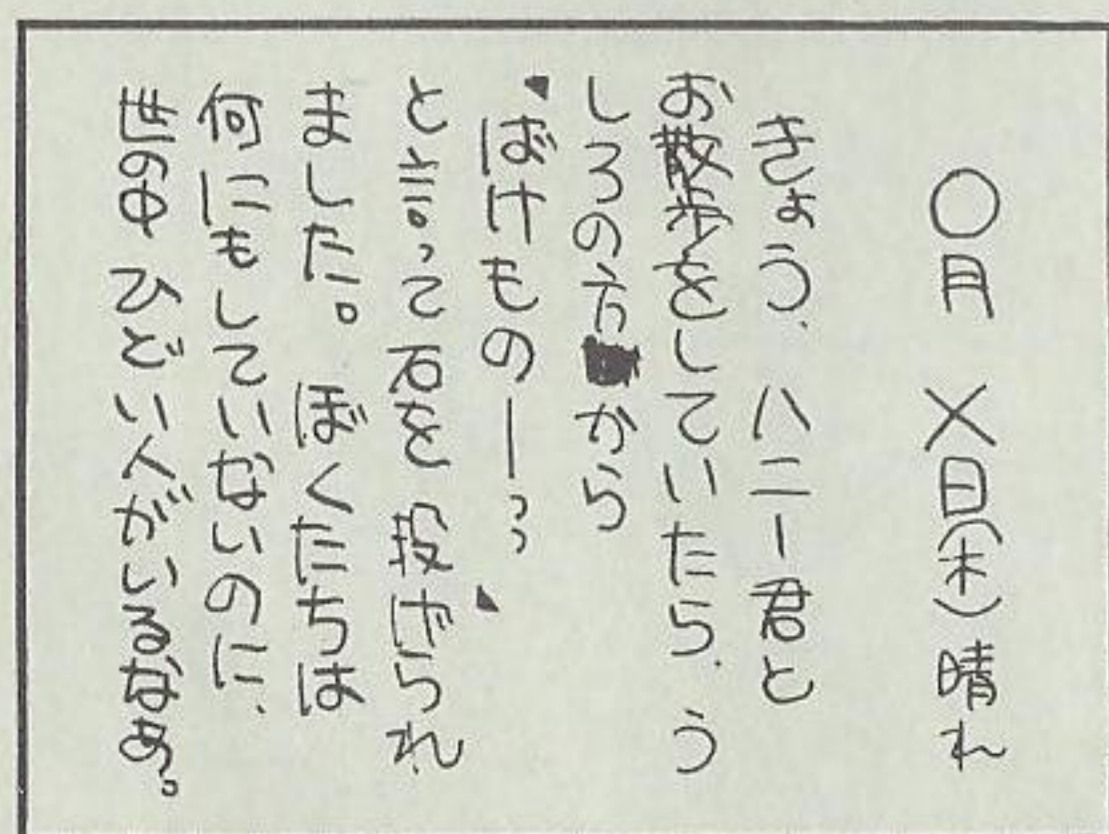 〇月 ×日(木)晴れ
きょう、ハニー君と
お散歩をしていたら、う
しろの方から
"ばけものーっっ"
と言って石を投げられ
ました。ぼくたちは
何にもしていないのに、
世の中ひどい人がいるなぁ。